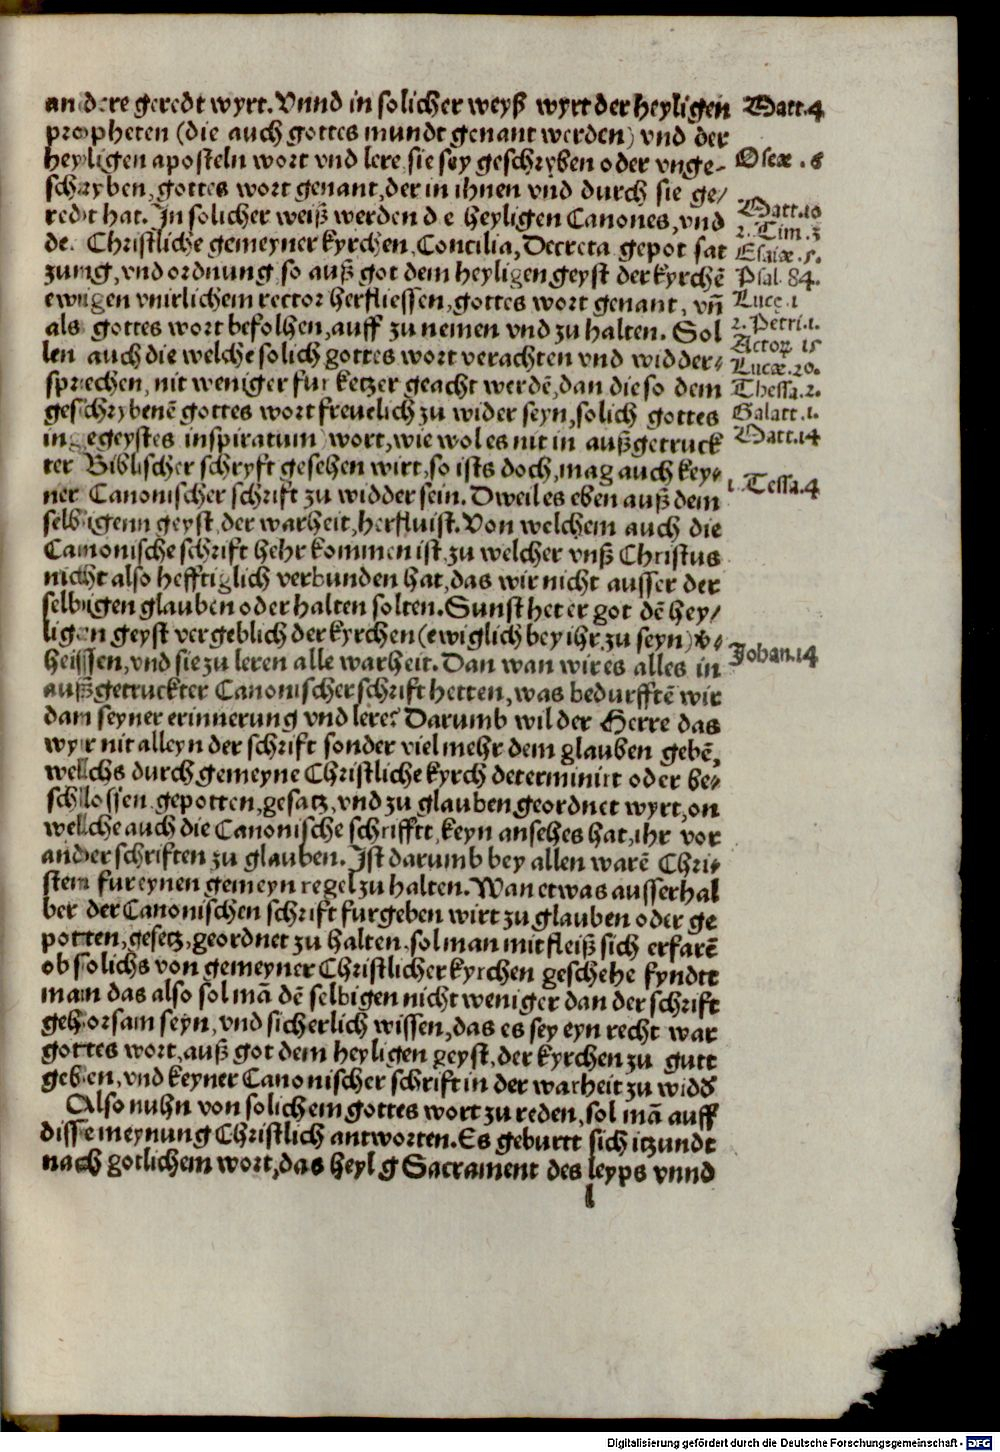 andere geredt wyrt. Vnnd in solicher weyß wyrt der heyligen
propheten (die auch gottes mundt genant werden) vnd der
heyligen aposteln wort vnd lere, sie sey geschryben oder vnge-
schryben, gottes wort genant, der in ihnen vnd durch sie ge/
redt hat. In solicher weiß werden die heyligen Canones, vnd
der Christliche gemeyner kyrchen, Concilia, Decreta gepot sat
zung, vnd ordnung so auß got dem heyligen geyst der kyrchē
ewigen vnirlichem rector herfliessen, gottes wort genant, vn̄
als gottes wort befolhen, auff zu nemen vnd zu halten. Sol
len auch die welche solich gottes wort verachten vnd widder-
sprechen, nit weniger fur ketzer geacht werdē, dan die so dem
geschrybenē gottes wort freuelich zu wider seyn, solich gottes
ingegeystes inspiratum) wort, wie wol es nit in außgetruck
ter Biblischer schryft gesehen wirt, so ists doch, mag auch key-
ner Canonischer schrift zu widder sein. Dweil es eben auß dem
selbigenn geyst, der warheit, herfluist. Von welchem auch die
Canonische schrift hehr kommen ist, zu welcher vnß Christus
nicht also hefftiglich verbunden hat, das wir nicht ausser der
selbigen glauben oder halten solten. Sunst het er got dē hey/
ligen geyst vergeblich der kyrchen (ewiglich bey ihr zu seyn) v-
heissen, vnd sie zu leren alle warheit. Dan wan wir es alles in
außgetruckter Canonischer schrift hetten, was bedurfftē wir
dan seyner erinnerung vnd lere? Darumb wil der Herre das
wyr nit alleyn der schrift sonder viel mehr dem glauben gebē,
welchs durch gemeyne Christliche kyrch determinirt oder be-
schlossen, gepotten, gesatz, vnd zu glauben geordnet wyrt, on
welche auch die Canonische schrifftt, keyn ansehes hat, ihr vor
ander schriften zu glauben. Ist darumb bey allen warē Chri-
sten fur eynen gemeyn regel zu halten. Wan etwas ausserhal
ber der Canonischen schrift furgeben wirt zu glauben oder ge
potten, gesetz, geordnet zu halten, sol man mit fleiß sich erfarē
ob solichs von gemeyner Christlicher kyrchen geschehe fyndtt
man das also sol mā dē selbigen nicht weniger dan der schrift
gehorsam seyn, vnd sicherlich wissen, das es sey eyn recht war
gottes wort, auß got dem heyligen geyst, der kyrchen zu gutt
geben, vnd keyner Canonischer schrift in der warheit zu widď
Also nuhn von solichem gottes wort zu reden, sol mā auff
disse meynung Christlich antworten. Es geburtt sich itzundt
nach gotlichem wort, das heylg Sacrament des leyps vnnd
l
Matt. 4
Oseæ. 6
Matt. 10
2. Tim. 3
Esaiæ. 5.
Psal. 84.
Lucę. 1
2. Petri. 1.
Actoꝝ 15
Lucæ. 20.
Thessa. 2.
Galatt. 1.
Matt. 14
1. Tessa. 4
Johan. 14
Digitalisierung gefördert durch die Deutsche Forschungsgemeinschaft - DFG